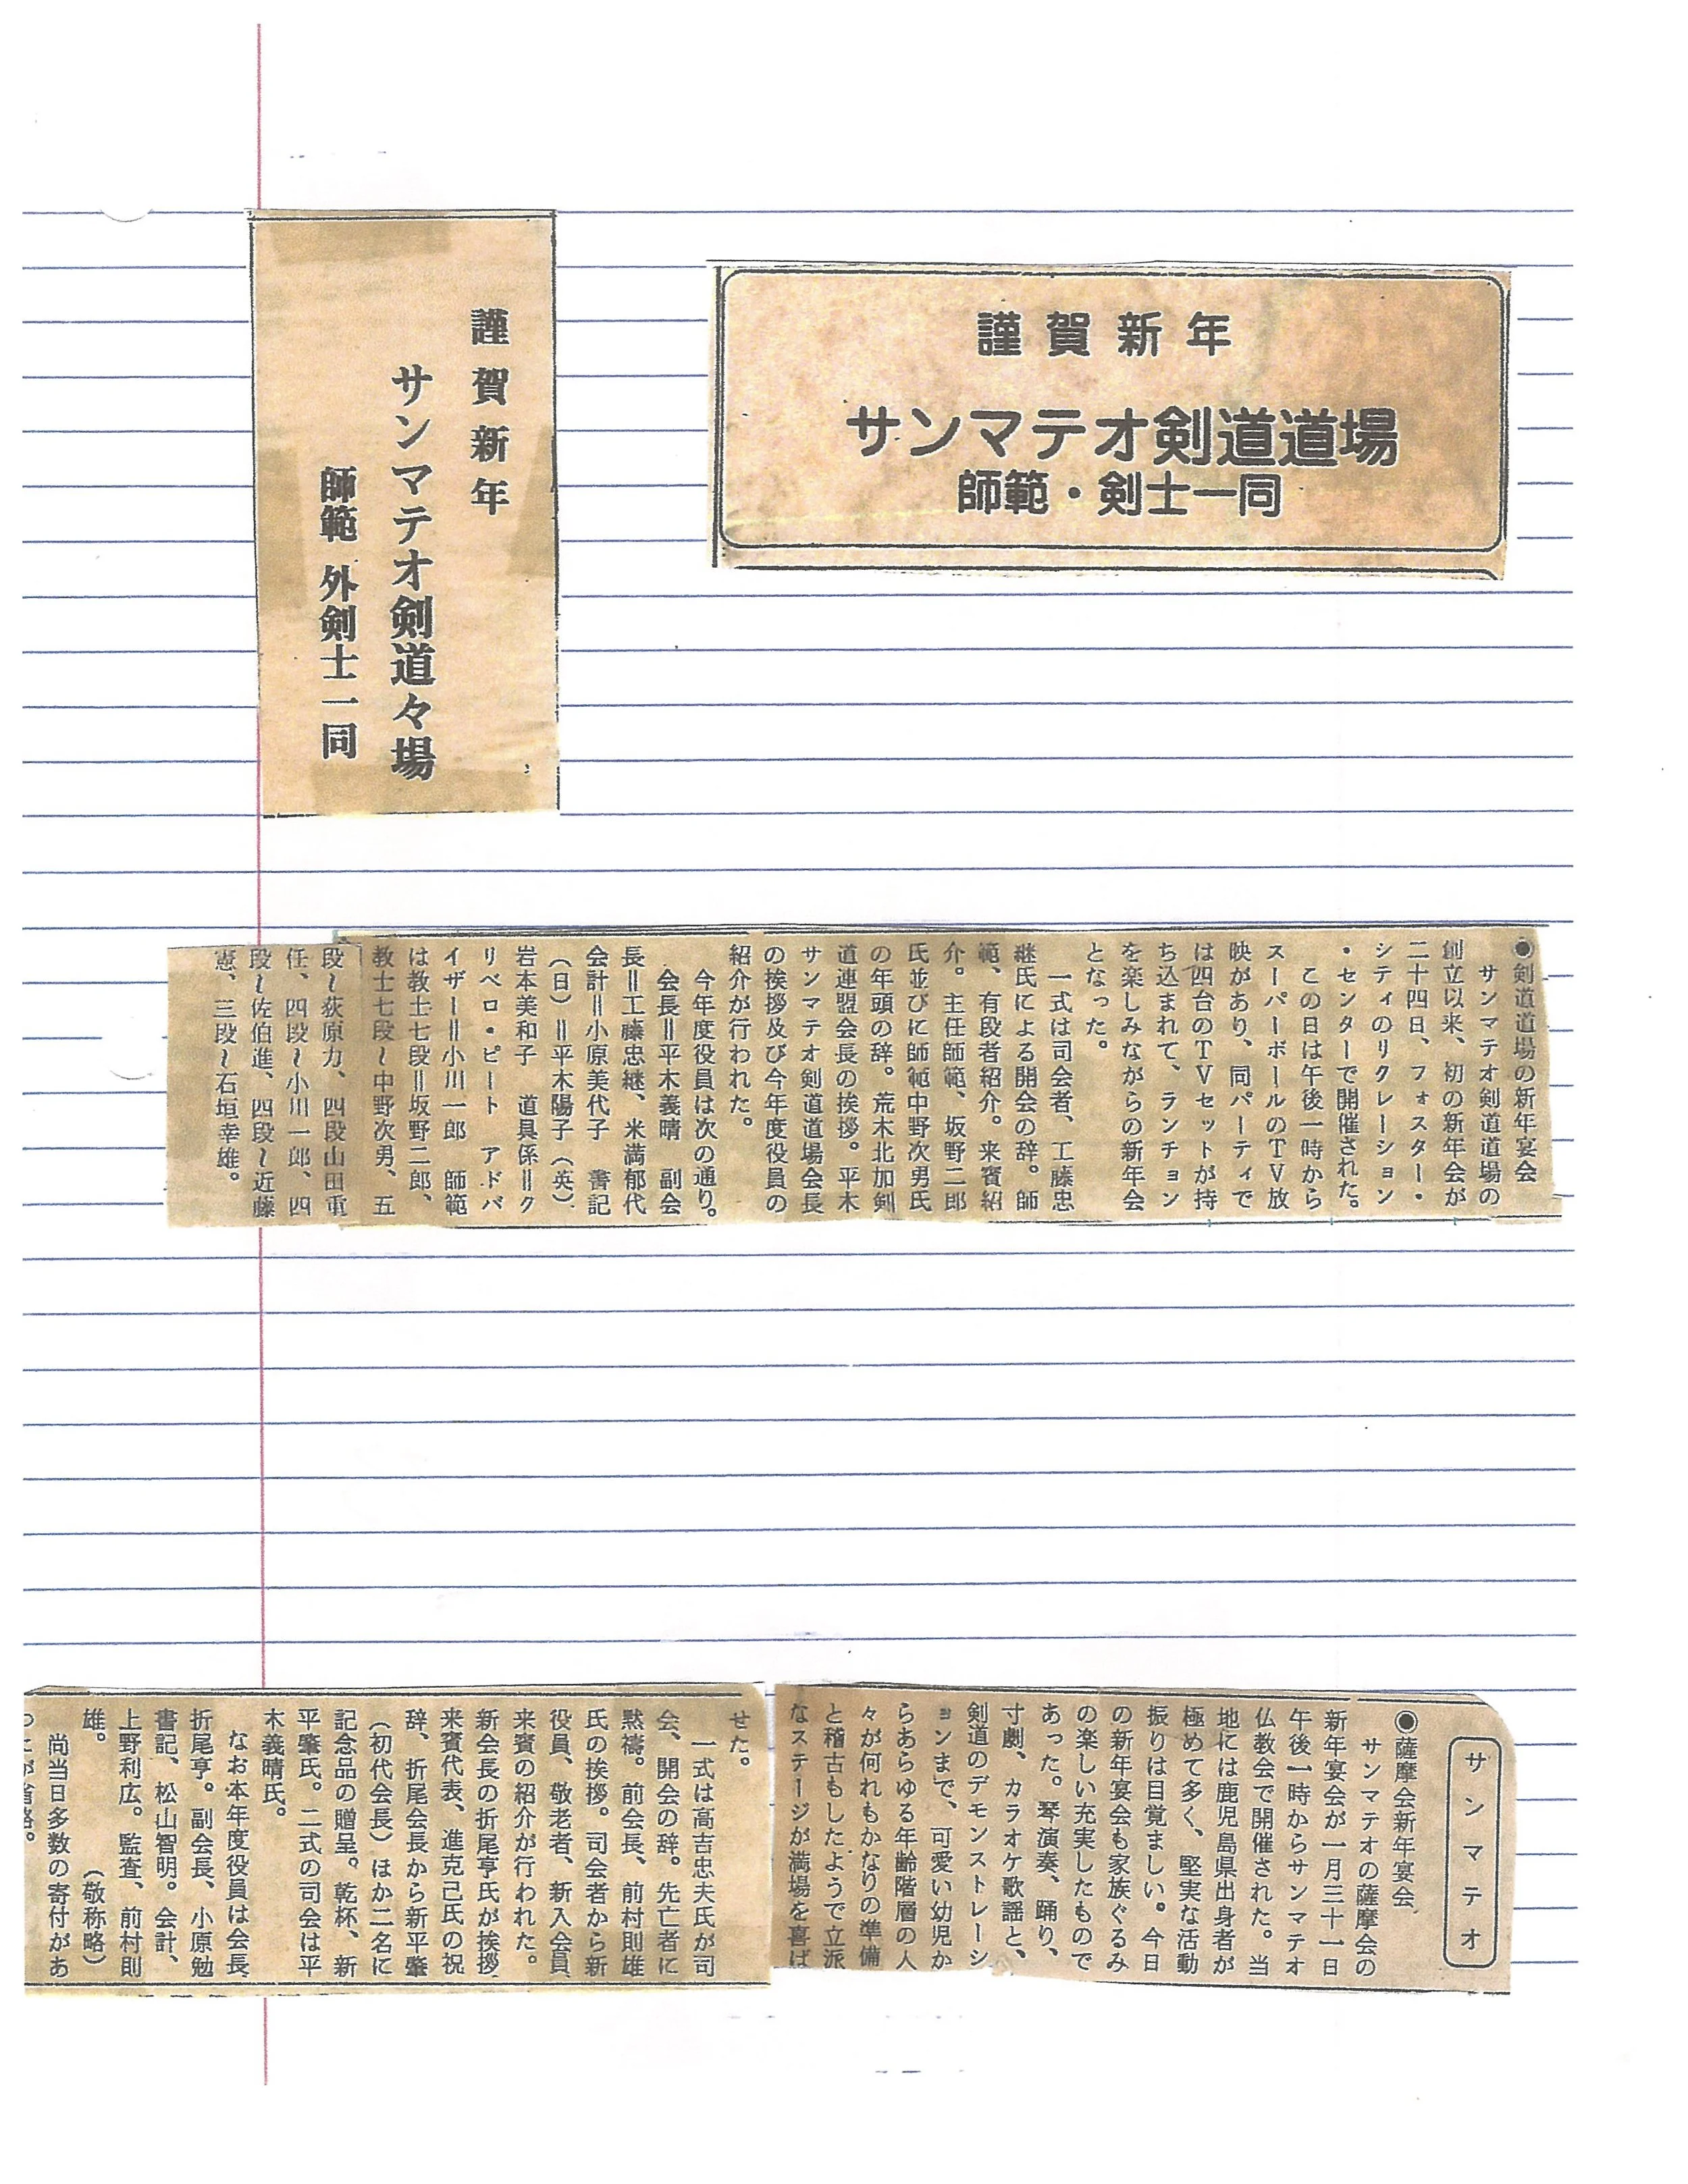 謹賀新年
サンマテオ剣道道場
師範・剣士一同
謹賀新年
サンマテオ剣道々場
師範 外剣士一同
◉剣道道場の新年宴会
サンマテオ剣道道場の
創立以来、初の新年会が
二十四日、フォスター・
シティのリクレーション
・センターで開催された。
この日は午後一時から
スーパーボールのTV放
映があり、同パーティで
は四台のTVセットが持
ち込まれて、ランチョン
を楽しみながらの新年会
となった。
一式は司会者、工藤忠
継氏による開会の辞。師
範、有段者紹介。来賓紹
介。主任師範、坂野二郎
氏並びに師範中野次男氏
の年頭の辞。荒木北加剣
道連盟会長の挨拶。平木
サンマテオ剣道道場会長
の挨拶及び今年度役員の
紹介が行われた。
今年度役員は次の通り。
会長=平木義晴 副会
長=工藤忠継、米満郁代
会計=小原美代子 書記
(日)=平木陽子(英)
岩本美和子 道具係=ク
リベロ・ピート アドバ
イザー=小川一郎 師範
は教士七段=坂野二郎、
教士七段~中野次男、五
段~荻原力、四段山田重
任、四段~小川一郎、四
段~佐伯進、四段~近藤
憲、三段~石垣幸雄。
サンマテオ
◉薩摩会新年宴会
サンマテオの薩摩会の
新年宴会が一月三十一日
午後一時からサンマテオ
仏教会で開催された。当
地には鹿児島県出身者が
極めて多く、堅実な活動
振りは目覚ましい。今日
の新年宴会も家族ぐるみ
の楽しい充実したもので
あった。琴演奏、踊り、
寸劇、カラオケ歌謡と、
剣道のデモンストレーシ
ョンまで、可愛い幼児か
らあらゆる年齢階層の人
々が何れもかなりの準備
と稽古もしたようで立派
なステージが満場を喜ば
せた。
一式は高吉忠夫氏が司
会、開会の辞。先亡者に
黙禱。前会長、前村則雄
氏の挨拶。司会者から新
役員、敬老者、新入会員
来賓の紹介が行われた。
新会長の折尾亨氏が挨拶
来賓代表、進克己氏の祝
辞、折尾会長から新平肇
(初代会長)ほか二名に
記念品の贈呈。乾杯、新
平肇氏。二式の司会は平
木義晴氏。
なお本年度役員は会長
折尾亨。副会長、小原勉
書記、松山智明。会計、
上野利広。監査、前村則
雄。 (敬称略)
尚当日多数の寄付があ